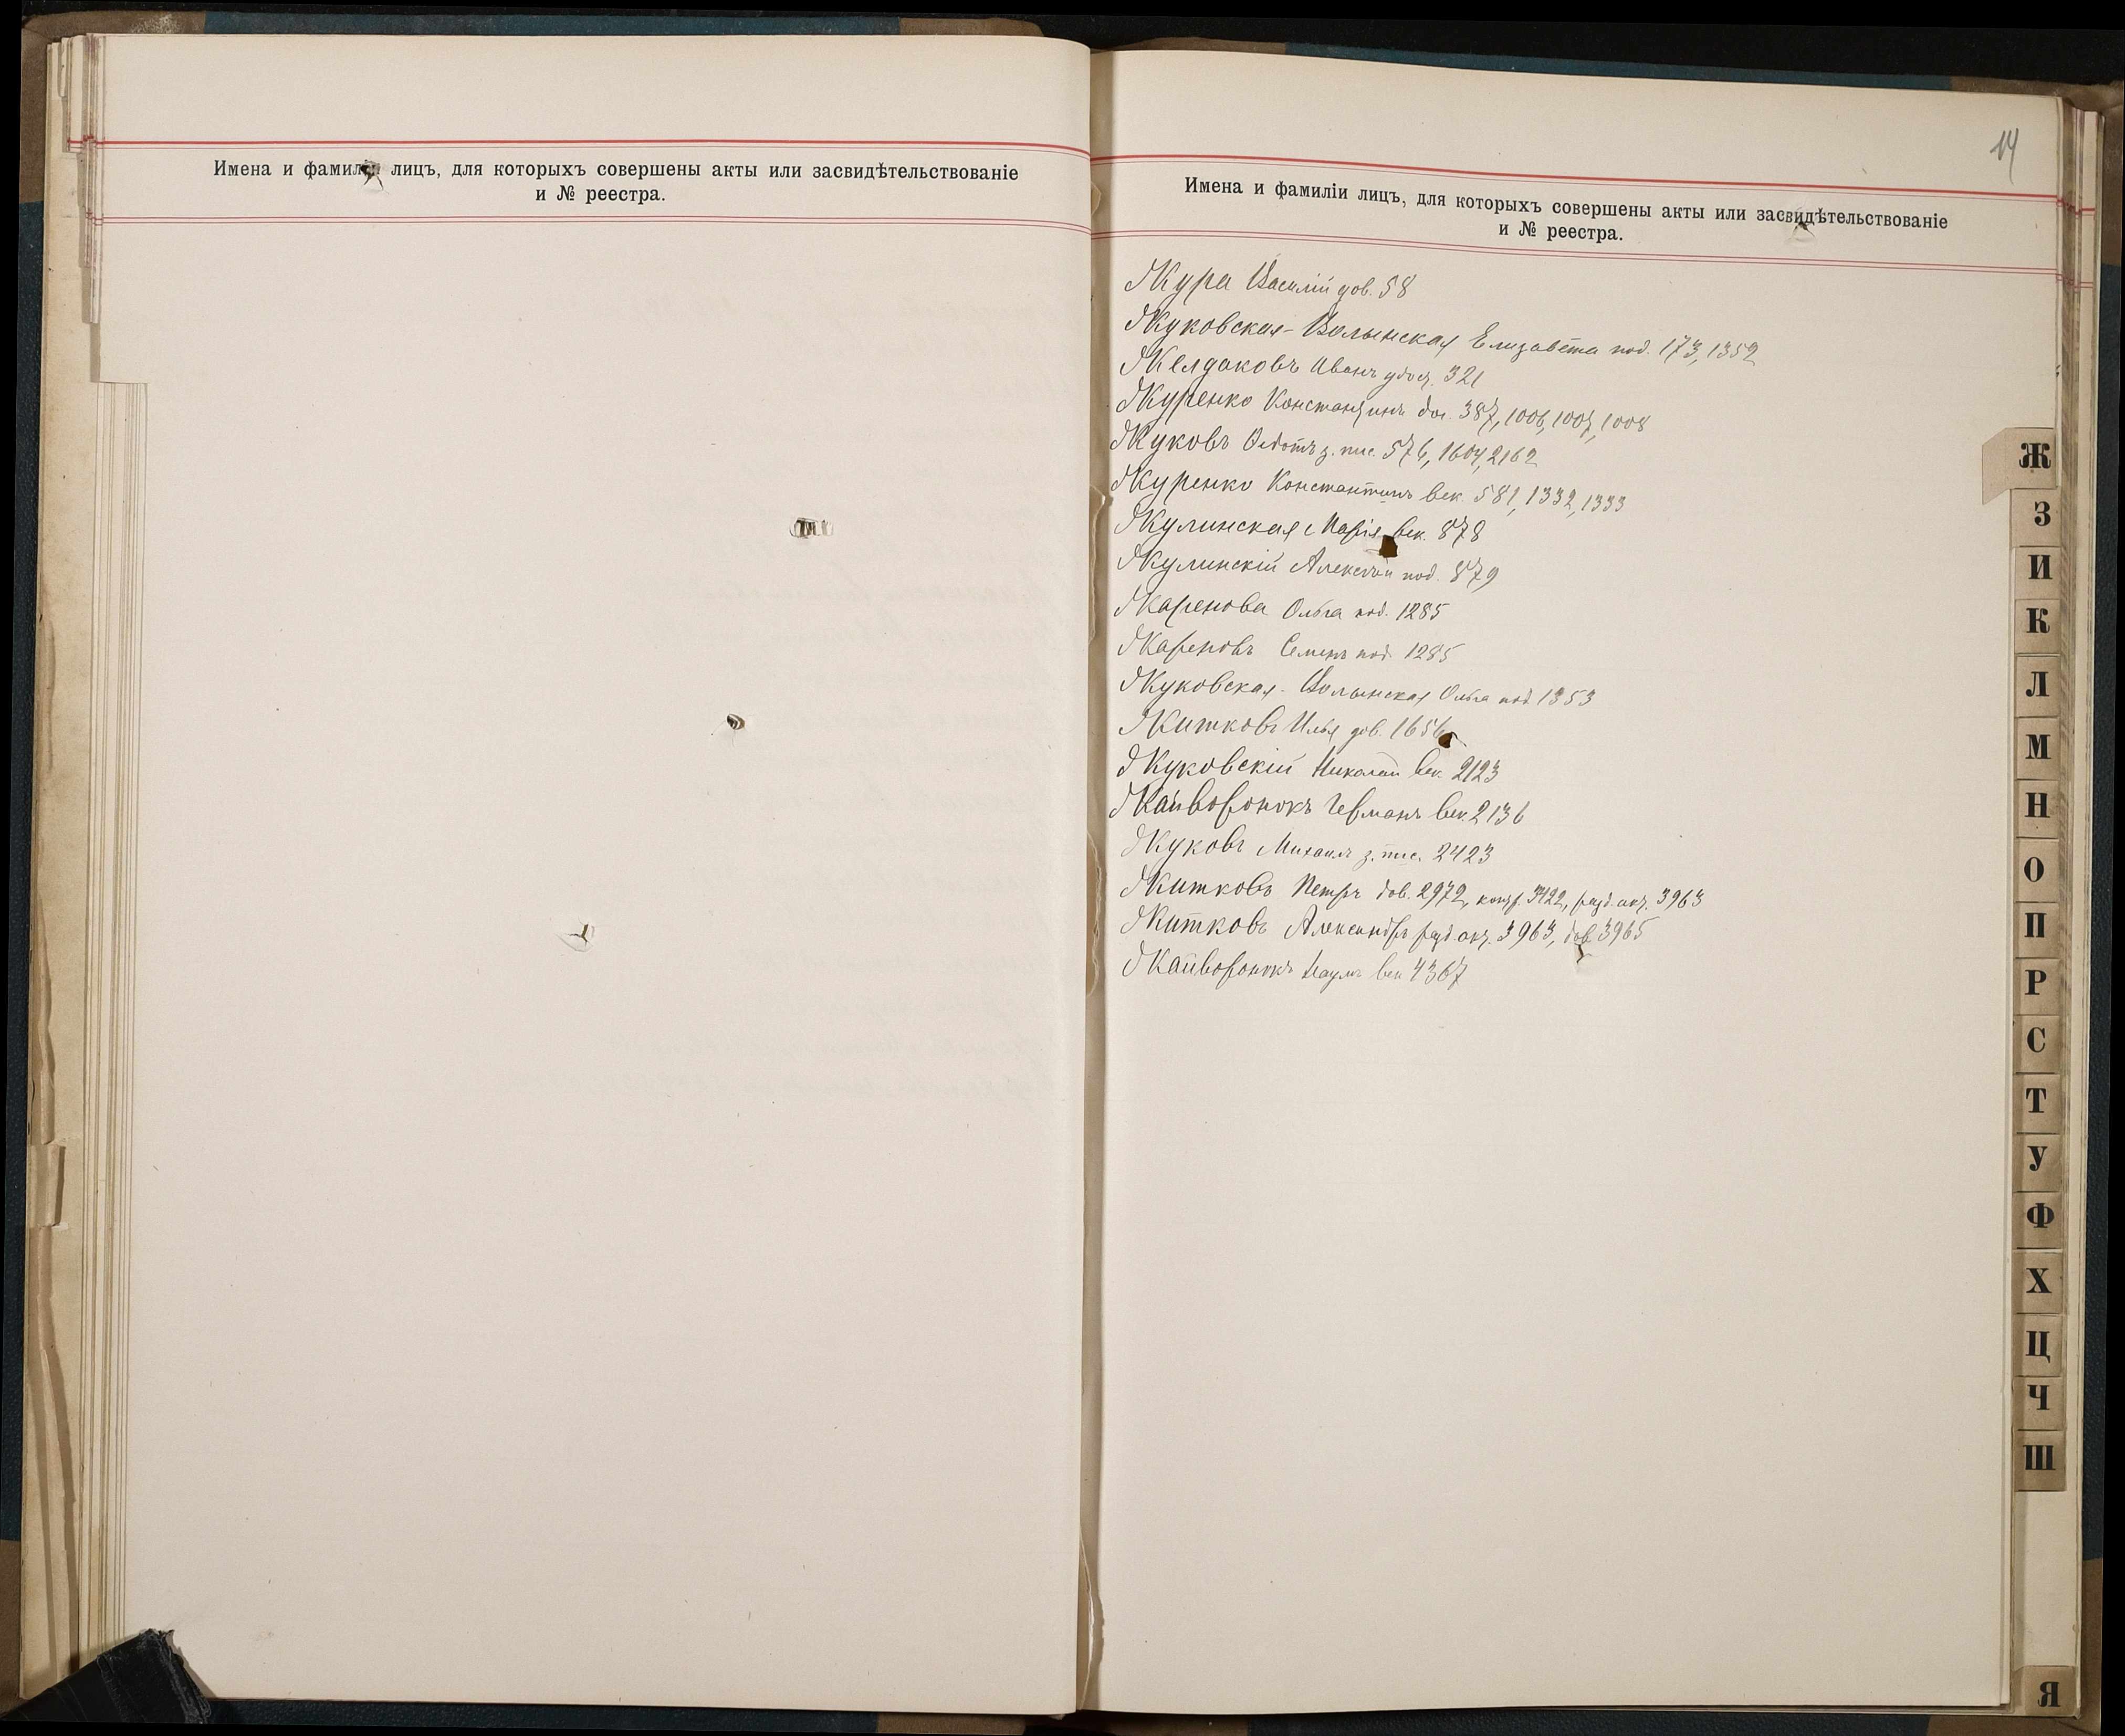 Имена и фамиліи лицъ, для которыхъ совершены акты или засвидѣтельствованіе
и № реестра.
14
Имена и фамиліи лицъ, для которыхъ совершены акты или засвидѣтельствованіе
и № реестра.
Жура Василій дов. 58
Жуковская-Волынская Елизавета под. 173, 1352
Желдаковъ Иванъ удост. 321
Журенко Константинъ дог. 387, 1006, 1007, 1008
Жуковъ Федотъ з. пис. 576, 1604, 2162
Журенко Константинъ век. 581, 1332, 1333
Жулинская Марія век. 878
Жулинскій Алексѣй под. 879
Жаренова Ольга под. 1285
Жареновъ Семенъ под. 1285
Жуковская-Волынская Ольга под. 1353
Житковъ Илья дов. 1656
Жуковскій Николай век. 2123
Жайворонокъ Германъ век. 2136
Жуковъ Михаилъ з. пис. 2423
Житковъ Петръ дов. 2972, контр. 3422, разд. акт. 3963
Житковъ Александръ разд. акт. 3963, дов. 3965
Жайворонокъ Наумъ век 4367
Ж
З
И
К
Л
М
Н
О
П
Р
С
Т
У
Ф
Х
Ц
Ч
Ш
Я